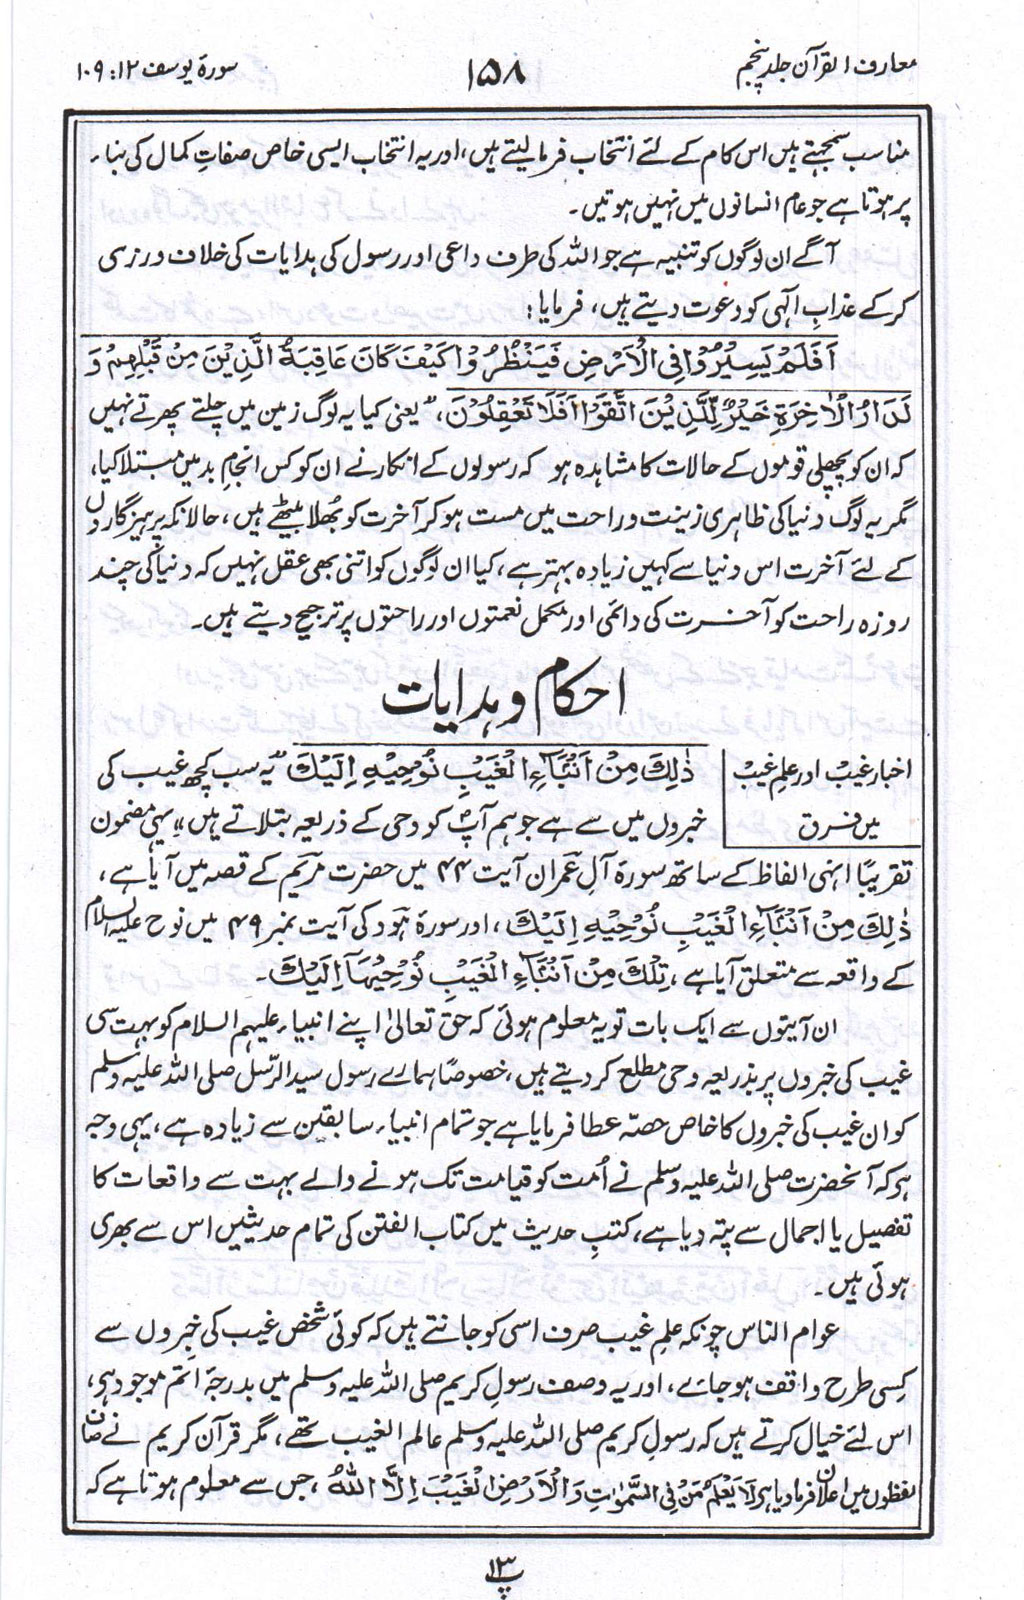 معارف القرآن جلد پنجم
۱۵۸
سورۃ یوسف ۱۲: ۱۰۹
مناسب سمجھتے ہیں اس کام کے لئے انتخاب فرما لیتے ہیں، اور یہ انتخاب ایسی خاص صفاتِ کمال کی بناء
پر ہوتا ہے جو عام انسانوں میں نہیں ہوتیں۔
آگے ان لوگوں کو تنبیہ ہے جو اللہ کی طرف داعی اور رسول کی ہدایات کی خلاف ورزی
کر کے عذابِ الٰہی کو دعوت دیتے ہیں، فرمایا:
اَفَلَمْ يَسِيْرُوْا فِي الْاَرْضِ فَيَنْظُرُوْا كَيْفَ كَانَ عَاقِبَةُ الَّذِيْنَ مِنْ قَبْلِهِمْ وَ
لَدَارُ الْاٰخِرَةِ خَيْرٌ لِّلَّذِيْنَ اتَّقَوْا اَفَلَا تَعْقِلُوْنَ، ”یعنی کیا یہ لوگ زمین میں چلتے پھرتے نہیں
کہ ان کو پچھلی قوموں کے حالات کا مشاہدہ ہو کہ رسولوں کے انکار نے ان کو کس انجامِ بد میں مبتلا کیا،
مگر یہ لوگ دنیا کی ظاہری زینت و راحت میں مست ہو کر آخرت کو بھلا بیٹھے ہیں، حالانکہ پرہیزگاروں
کے لئے آخرت اس دنیا سے کہیں زیادہ بہتر ہے، کیا ان لوگوں کو اتنی بھی عقل نہیں کہ دنیا کی چند
روزہ راحت کو آخرت کی دائمی اور مکمل نعمتوں اور راحتوں پر ترجیح دیتے ہیں۔
احکام و ہدایات
اخبارِ غیب اور علمِ غیب
میں فرق
ذٰلِكَ مِنْ اَنْۢبَآءِ الْغَيْبِ نُوْحِيْهِ اِلَيْكَ ”یہ سب کچھ غیب کی
خبروں میں سے ہے جو ہم آپ کو وحی کے ذریعہ بتلاتے ہیں“ یہی مضمون
تقریباً انہی الفاظ کے ساتھ سورۃ آلِ عمران آیت ۴۴ میں حضرت مریم کے قصہ میں آیا ہے،
ذٰلِكَ مِنْ اَنْۢبَآءِ الْغَيْبِ نُوْحِيْهِ اِلَيْكَ، اور سورۃ ہود کی آیت نمبر ۴۹ میں نوح علیہ السلام
کے واقعہ سے متعلق آیا ہے، تِلْكَ مِنْ اَنْۢبَآءِ الْغَيْبِ نُوْحِيْهَآ اِلَيْكَ۔
ان آیتوں سے ایک بات تو یہ معلوم ہوئی کہ حق تعالیٰ اپنے انبیاء علیہم السلام کو بہت سی
غیب کی خبروں پر بذریعہ وحی مطلع کر دیتے ہیں، خصوصاً ہمارے رسول سید الرسل صلی اللہ علیہ وسلم
کو ان غیب کی خبروں کا خاص حصہ عطا فرمایا ہے جو تمام انبیاء سابقین سے زیادہ ہے، یہی وجہ
ہے کہ آنحضرت صلی اللہ علیہ وسلم نے اُمت کو قیامت تک ہونے والے بہت سے واقعات کا
تفصیل یا اجمال سے پتہ دیا ہے، کتبِ حدیث میں کتاب الفتن کی تمام حدیثیں اس سے بھری
ہوئی ہیں۔
عوام الناس چونکہ علمِ غیب صرف اسی کو جانتے ہیں کہ کوئی شخص غیب کی خبروں سے
کسی طرح واقف ہو جائے، اور یہ وصف رسولِ کریم صلی اللہ علیہ وسلم میں بدرجۂ اتم موجود ہے،
اس لئے خیال کرتے ہیں کہ رسولِ کریم صلی اللہ علیہ وسلم عالم الغیب تھے، مگر قرآن کریم نے صاف
لفظوں میں اعلان فرما دیا ہے لَا يَعْلَمُ مَنْ فِي السَّمٰوٰتِ وَالْاَرْضِ الْغَيْبَ اِلَّا اللّٰهُ، جس سے معلوم ہوتا ہے کہ
پ ۱۳